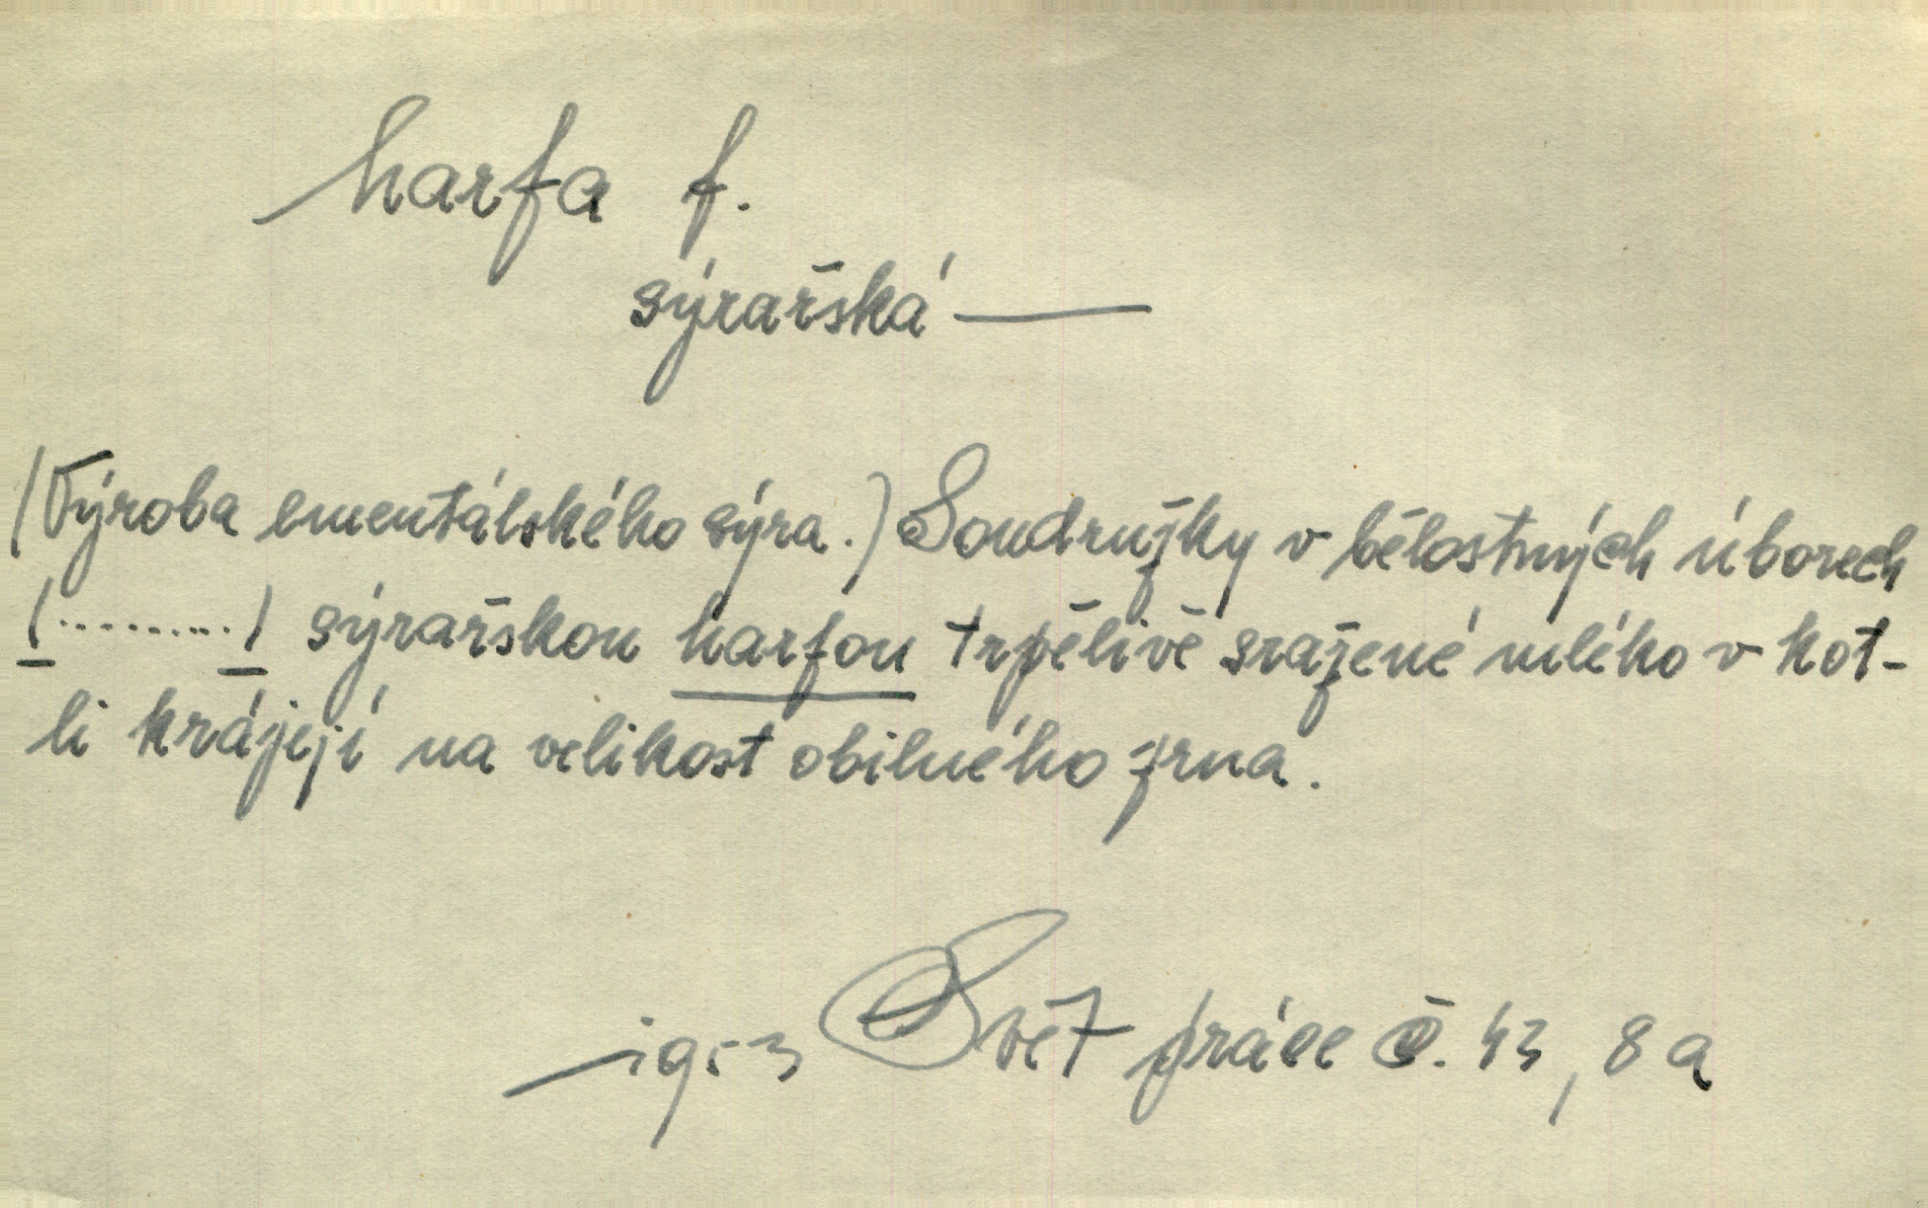 harfa f.
sýrařská —
(Výroba ementálského sýra.) Soudružky v bělostných úborech
(.........) sýrařskou harfou trpělivě sražené mléko v kot-
li krájejí na velikost obilného zrna.
1953 Svět práce č. 43, 8a